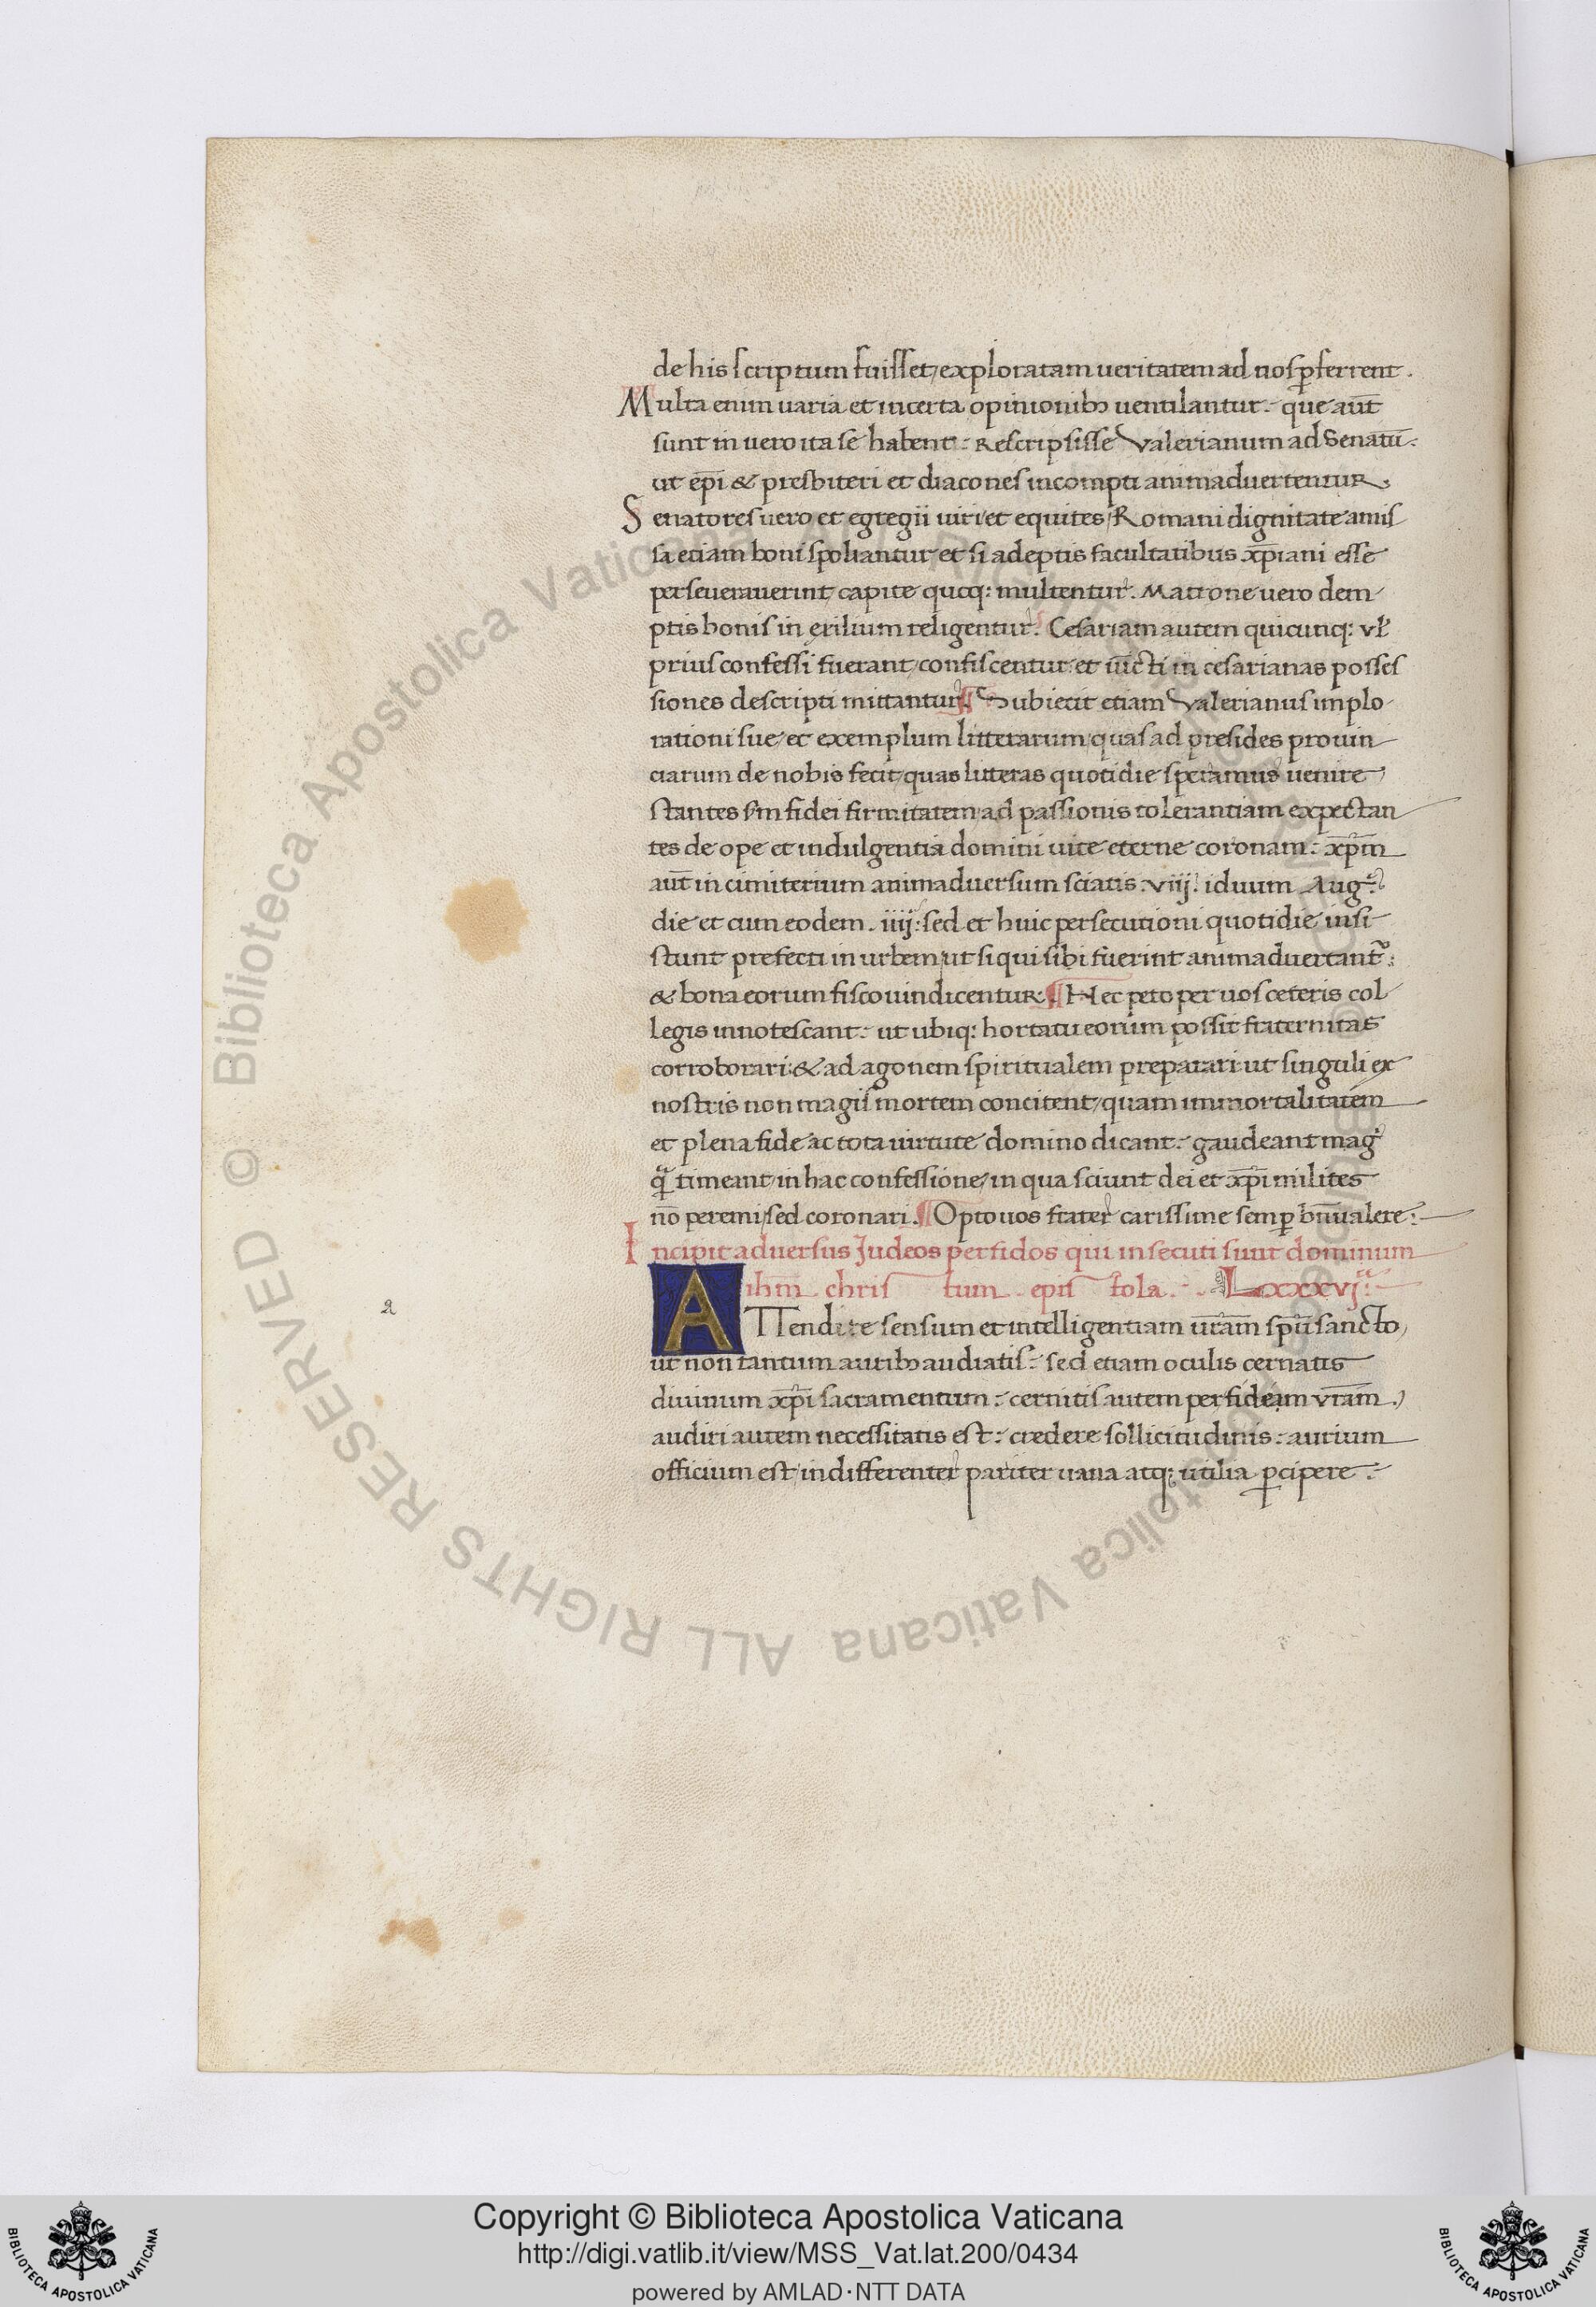 de his scriptum fuisset, exploratam ueritatem ad nos ꝑferrent.
Multa enim uaria et incerta opinionibꝫ uentilantur. que aut̄
sunt in uero ita se habent. Rescripsisse Valerianum ad Senatū.
ut ep̄i & presbiteri et diacones incompti animaduertentur.
Senatores uero et egregii uiri et equites Romani dignitate amis
sa etiam boni spoliantur et si adeptis facultatibus xp̄iani esse
perseuerauerint capite qucq: multentur. Matrone uero dem
ptis bonis in exilium religentur. Cesariam autem quicunq: vł
prius confessi fuerant, confiscentur et iūcti in cesarianas posses
siones descripti mittantur. ¶ Subiecit etiam Valerianus implo
rationi sue, et exemplum litterarum quas ad presides prouin
ciarum de nobis fecit, quas litteras quotidie speramus uenire
stantes sm̄ fidei firmitatem ad passionis tolerantiam expectan
tes de ope et indulgentia domini uite eterne coronam. xp̄m
aut̄ in cimiterium animaduersum sciatis. viij. iduum Aug.
die et cum eodem. iiij. sed et huic persecutioni quotidie insi
stunt prefecti in urbem, ut siqui sibi fuerint animaduertant̃.
& bona eorum fisco uindicentur. ¶ Hec peto per uos ceteris col
legis innotescant. ut ubiq: hortatu eorum possit fraternitas
corroborari. & ad agonem spiritualem preparari. ut singuli ex
nostris non magis mortem concitent, quam immortalitatem
et plena fide ac tota uirtute domino dicant. gaudeant mag̛
q̃ timeant, in hac confessione, in qua sciunt dei et xp̄i milites
nō peremi, sed coronari. ¶ Opto uos frater carissime semꝑ bn̄ ualere.
Incipit aduersus Judeos perfidos qui insecuti sunt dominum
ihm̄ chris tum epis tola. Lxxxvjª
ATTendite sensum et intelligentiam ur̄am sp̄u sancto,
ut non tantum auribꝫ audiatis. sed etiam oculis cernatis
diuinum xp̄i sacramentum. cernitis autem per fidem vr̄am.
audiri autem necessitatis est. credere sollicitudinis. aurium
officium est, indifferenter pariter uana atq: utilia ꝑcipere.
2
Copyright © Biblioteca Apostolica Vaticana
http://digi.vatlib.it/view/MSS_Vat.lat.200/0434
powered by AMLAD·NTT DATA
© Biblioteca Apostolica Vaticana ALL RIGHTS RESERVED
© Biblioteca Apostolica Vaticana ALL RIGHTS RESERVED
BIBLIOTECA APOSTOLICA VATICANA
BIBLIOTECA APOSTOLICA VATICANA